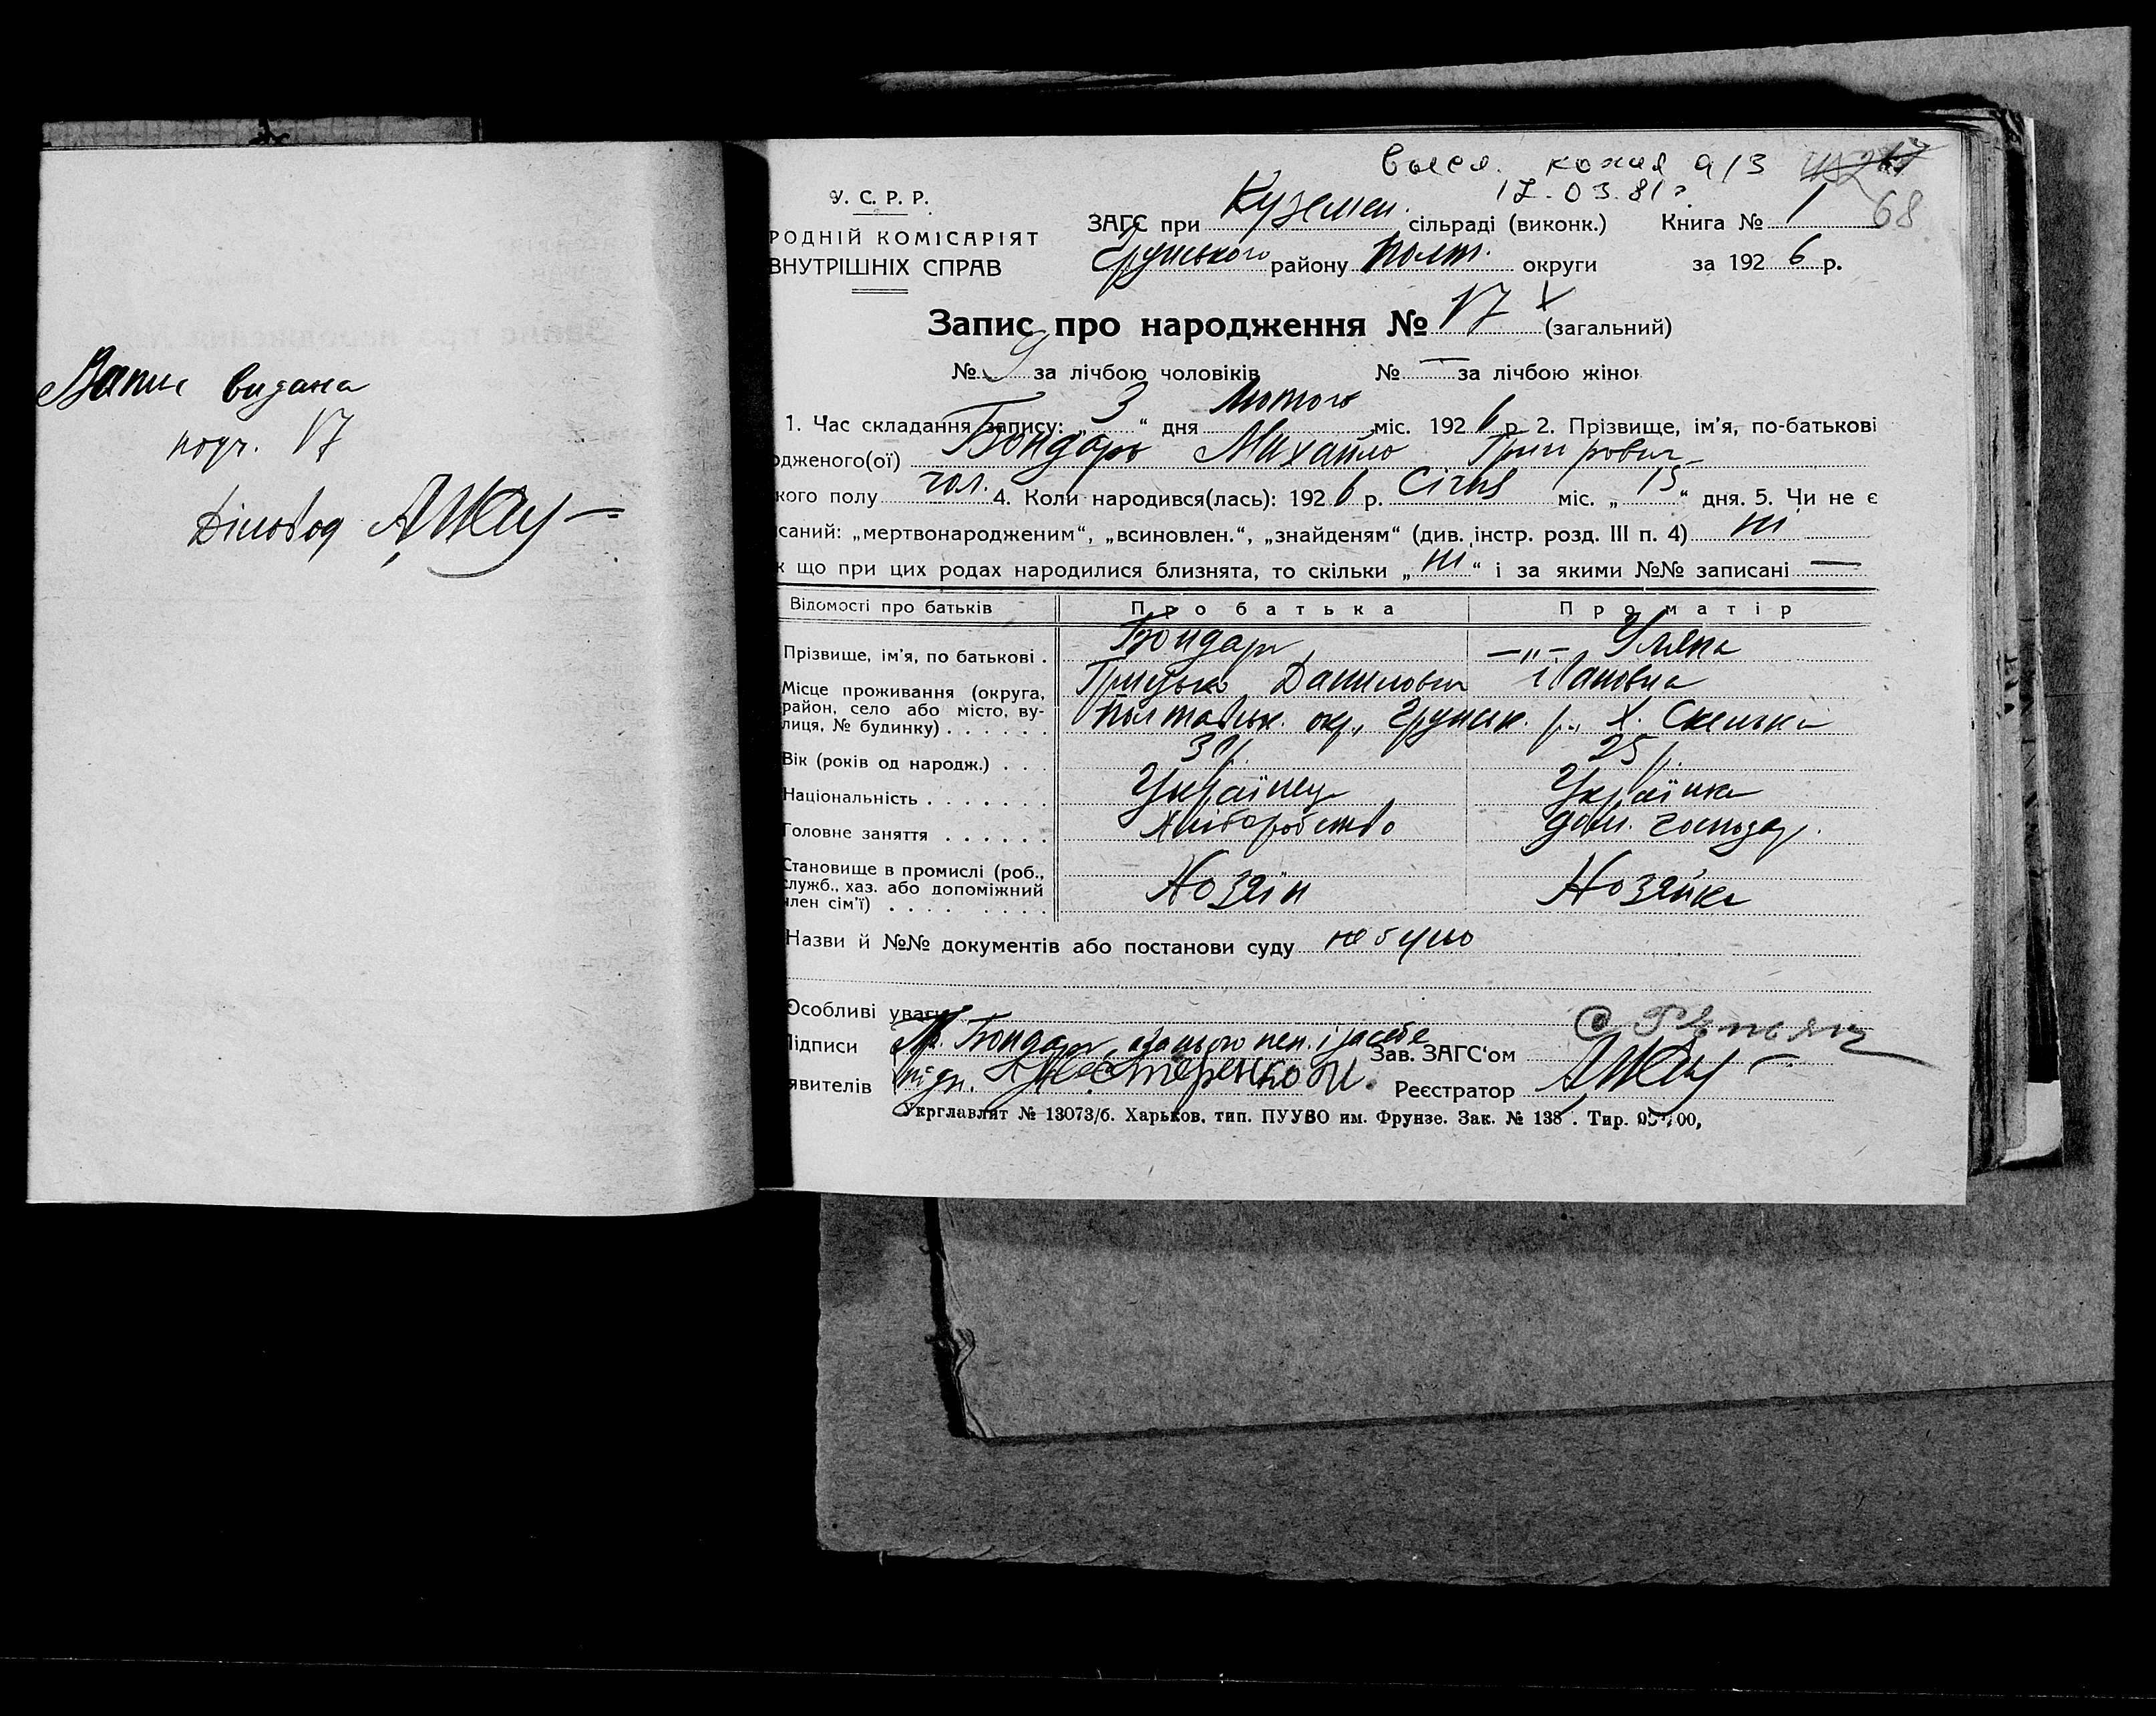 Запис видана
Діловод
высл. копия а/з
17.03.81г.
68
У. С. Р. Р.
РОДНІЙ КОМІСАРІЯТ
ВНУТРІШНІХ СПРАВ
ЗАГС при Куземен. сільраді (виконк.) Книга № 1
Грунського району Полт. округи за 1926 р.
Запис про народження № 17 (загальний)
№ 9 за лічбою чоловіків № — за лічбою жіно
1. Час складання запису: „3“ дня Лютого міс. 1926 р. 2. Прізвище, ім’я, по-батькові
одженого(ої) Бондарь Михайло
кого полу чол. 4. Коли народився(лась): 1926 р. Січня міс. „15“ дня. 5. Чи не є
саний: „мертвонародженим“, „всиновлен.“, „знайденям“ (див. інстр. розд. III п. 4) ні
к що при цих родах народилися близнята, то скільки „ні“ і за якими №№ записані —
Відомості про батьків Про батька Про матір
Прізвище, ім’я, по батькові . Бондарь —„— Уляна
Грицько Данилович Івановна
Місце проживання (округа, район, село або місто, вулиця, № будинку) . . . . . . Полтавськ. окр., Грунськ. р., х. Скелька
Вік (років од народж.) . . . 25 р.
Національність . . . . . . . Українець Українка
Головне заняття . . . . . . Хліборобство дом. господар.
Становище в промислі (роб., служб., хаз. або допоміжний член сім’ї) . . . . . . . . Хозяїн Хозяйка
Назви й №№ документів або постанови суду не було
Особливі уваги
Підписи Гр. Бондарь, а за нього неп. і за себе Зав. ЗАГС‘ом
явителів підп. Нестеренко Реєстратор
Укрглавлит № 13073/б. Харьков, тип. ПУУВО им. Фрунзе. Зак. № 138 . Тир.